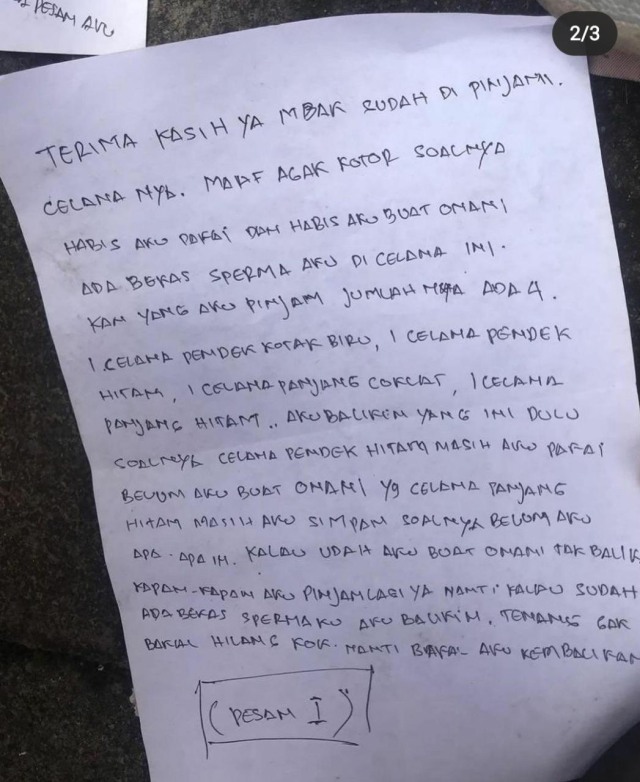 PESAM AKU
2/3
TERIMA KASIH YA MBAK SUDAH DI PINJAMI.
CELANA NYA. MAAF AGAK KOTOR SOALNYA
HABIS AKU PAKAI DAN HABIS AKU BUAT ONANI
ADA BEKAS SPERMA AKU DI CELANA INI.
KAN YANG AKU PINJAM JUMLAH NYA ADA 4.
1 CELANA PENDEK KOTAK BIRU, 1 CELANA PENDEK
HITAM, 1 CELANA PANJANG COKLAT, 1 CELANA
PANJANG HITAM.. AKU BALIKIN YANG INI DULU
SOALNYA CELANA PENDEK HITAM MASIH AKU PAKAI
BELUM AKU BUAT ONANI YG CELANA PANJANG
HITAM MASIH AKU SIMPAN SOALNYA BELUM AKU
APA-APA IN. KALAU UDAH AKU BUAT ONANI TAK BALIK
KAPAN-KAPAN AKU PINJAM LAGI YA NANTI KALAU SUDAH
ADA BEKAS SPERMAKU AKU BALIKIN. TENANG GAK
BAKAL HILANG KOK. NANTI BAKAL AKU KEMBALIKAN
(PESAN I)